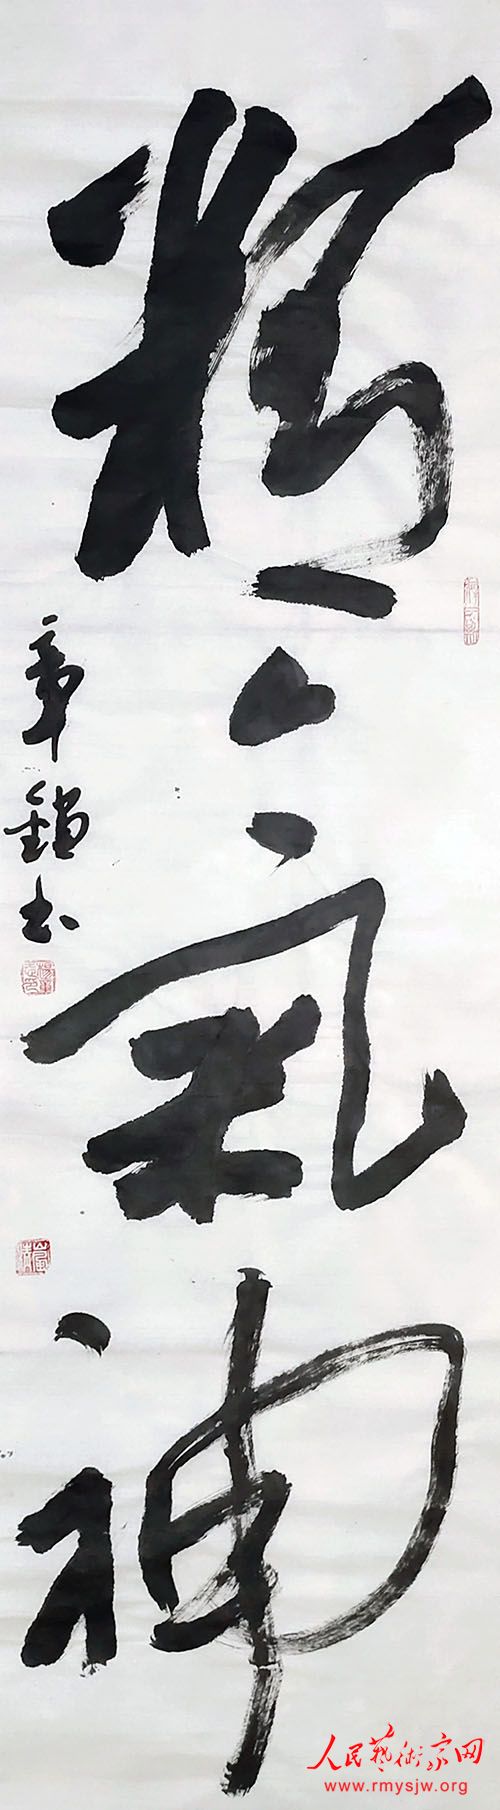 精氣神
章鎧书
人民藝術家网
www.rmysjw.org